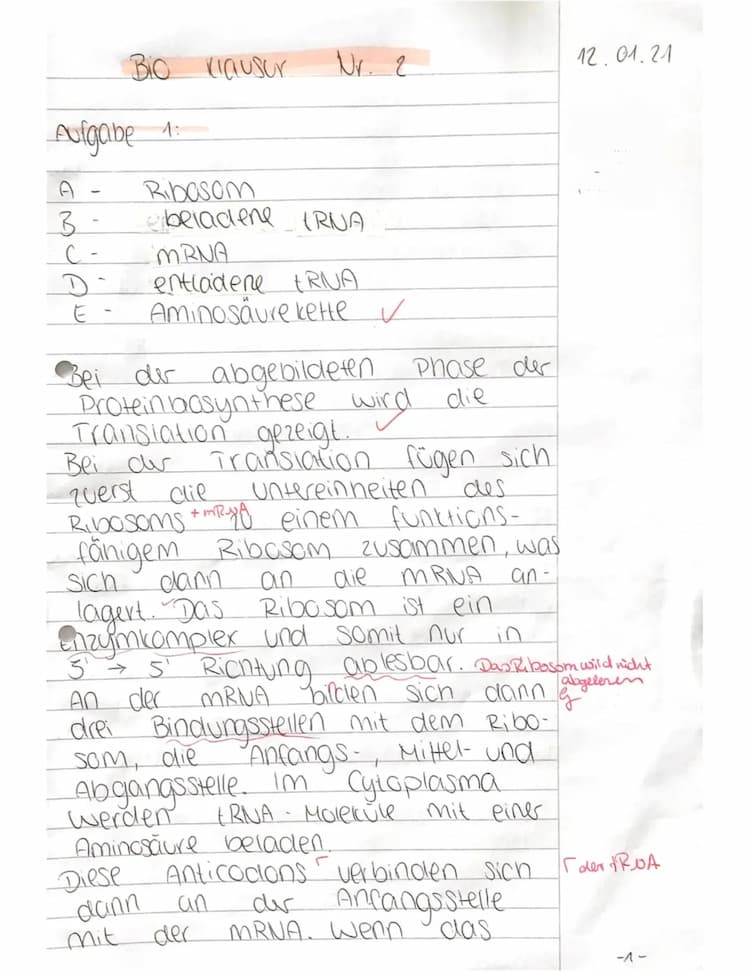 Bio Klausur Nr. 2
12.01.21
Aufgabe 1:
A - Ribosom
B - beladene tRNA
C - mRNA
D - entladene tRNA
E - Aminosäurekette ✓
Bei der abgebildeten Phase der
Proteinbosynthese wird die
Translation gezeigt. ✓
Bei der Translation fügen sich
zuerst die Untereinheiten des
Ribosoms + mRNA zu einem funktions-
fähigem Ribosom zusammen, was
sich dann an die mRNA an-
lagert. Das Ribosom ist ein
Enzymkomplex und somit nur in
3' → 5' Richtung ablesbar. Das Ribosom wird nicht
abgelesen
An der mRNA bilden sich dann
drei Bindungsstellen mit dem Ribo-
som, die Anfangs-, Mittel- und
Abgangsstelle. Im Cytoplasma
werden tRNA - Moleküle mit einer
Aminosäure beladen.
Diese Anticodons ┌ verbinden sich ┌ der tRNA
dann an der Anfangsstelle
mit der mRNA. Wenn das
-1-